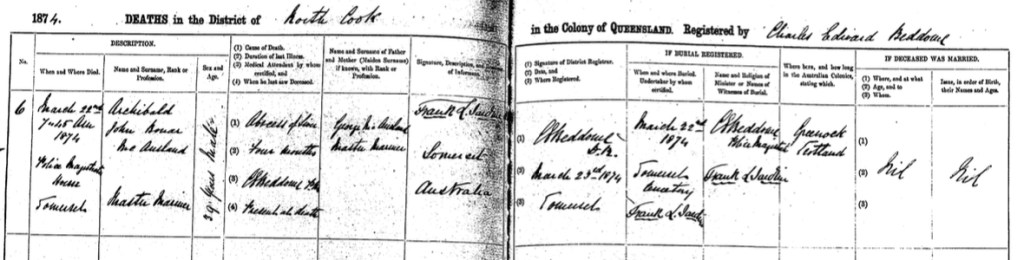 1874. DEATHS in the District of North Cook
in the Colony of QUEENSLAND. Registered by Charles Edward Beddome
No.
DESCRIPTION.
When and Where Died.
Name and Surname, Rank or
Profession.
Sex and
Age.
(1) Cause of Death.
(2) Duration of last Illness.
(3) Medical Attendant by whom
certified, and
(4) When he last saw Deceased.
Name and Surname of Father
and Mother (Maiden Surname)
if known, with Rank or
Profession.
Signature, Description, and
of Informant.
(1) Signature of District Registrar.
(2) Date, and
(3) Where Registered.
IF BURIAL REGISTERED.
When and where Buried.
Undertaker by whom
certified.
Name and Religion of
Minister or Names of
Witnesses of Burial.
Where born, and how long
in the Australian Colonies,
stating which.
IF DECEASED WAS MARRIED.
(1) Where, and at what
(2) Age, and to
(3) Whom.
Issue, in order of Birth,
their Names and Ages.
6
March 22nd
7-45 Am
1874
Police Magistrate
House
Somerset
Archibald
John Bonar
Mc Ausland
Master Mariner
Male
29 years
(1) Abscess of Liver
(2) Four months
(3) CE Beddome PM
(4) Present at death
George Mc Ausland
Master Mariner
Frank L. Jardine
Somerset
Australia
(1) CE Beddome
D.R.
(2) March 23rd 1874
(3) Somerset
March 22nd
1874
Somerset
Cemetery
Frank L. Jardine
CE Beddome
Police Magistrate
Frank L Jardine
Greenock
Scotland
(1)
(2) Nil
(3)
Nil